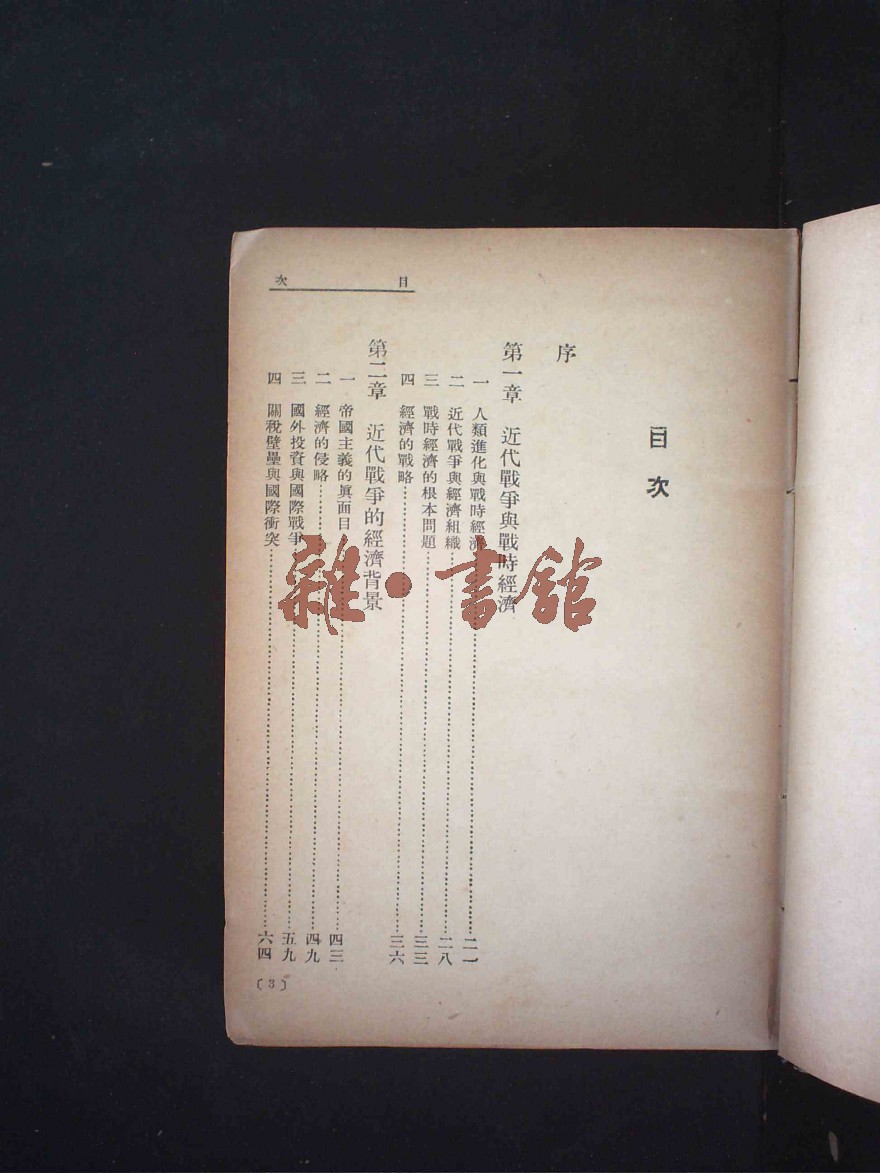 目次
序
第一章 近代戰爭與戰時經濟
一 人類進化與戰時經濟……二一
二 近代戰爭與經濟組織……二八
三 戰時經濟的根本問題……三三
四 經濟的戰略……三六
第二章 近代戰爭的經濟背景
一 帝國主義的眞面目……四三
二 經濟的侵略……四九
三 國外投資與國際戰爭……五九
四 關稅壁壘與國際衝突……六四
目次
〔3〕
雜·書館